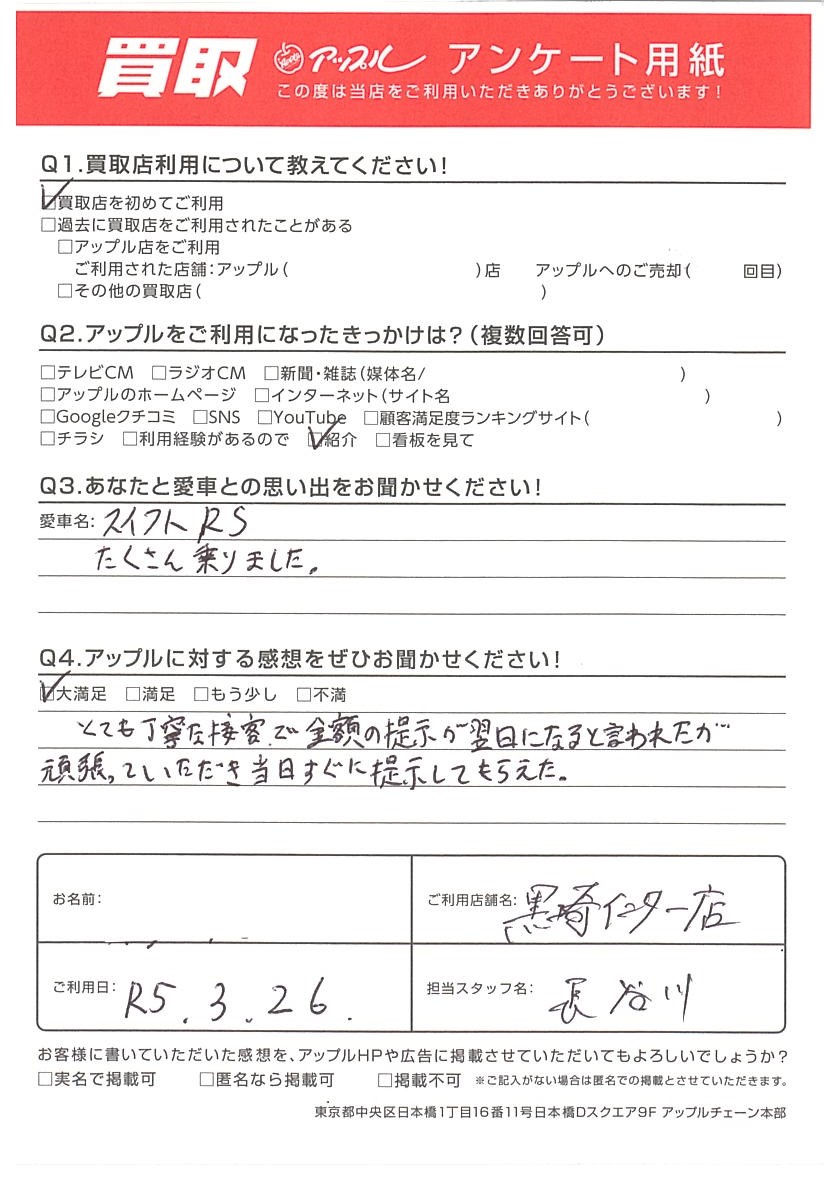 買取 アップル アンケート用紙
この度は当店をご利用いただきありがとうございます！
Q1.買取店利用について教えてください！
☑買取店を初めてご利用
□過去に買取店をご利用されたことがある
□アップル店をご利用
ご利用された店舗：アップル（　　　）店　アップルへのご売却（　　　回目）
□その他の買取店（　　　）
Q2.アップルをご利用になったきっかけは？（複数回答可）
□テレビCM　□ラジオCM　□新聞・雑誌（媒体名/　　　）
□アップルのホームページ　□インターネット（サイト名　　　）
□Googleクチコミ　□SNS　□YouTube　□顧客満足度ランキングサイト（　　　）
□チラシ　□利用経験があるので　☑紹介　□看板を見て
Q3.あなたと愛車との思い出をお聞かせください！
愛車名：スイフトRS
たくさん乗りました。
Q4.アップルに対する感想をぜひお聞かせください！
☑大満足　□満足　□もう少し　□不満
とても丁寧な接客で金額の提示が翌日になると言われたが
頑張っていただき当日すぐに提示してもらえた。
お名前：
ご利用店舗名：黒埼インター店
ご利用日：R5.3.26.
担当スタッフ名：長谷川
お客様に書いていただいた感想を、アップルHPや広告に掲載させていただいてもよろしいでしょうか？
□実名で掲載可　□匿名なら掲載可　□掲載不可　※ご記入がない場合は匿名での掲載とさせていただきます。
東京都中央区日本橋1丁目16番11号日本橋Dスクエア9F アップルチェーン本部